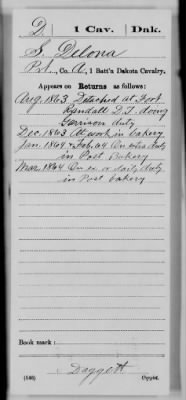 D | 1 Cav. | Dak.
S. Delona
Pvt., Co. A, 1 Batt'n Dakota Cavalry.
Appears on Returns as follows:
Aug. 1863 Detached at Fort
Randall D.T. doing
Garrison duty
Dec. 1863 At work in bakery
Jan. 1864 & Feb. 64 On extra duty
in Post Bakery
Mar. 1864 On ex. or daily duty
in Post bakery
Book mark:
(546)
Daggett
Copyist.